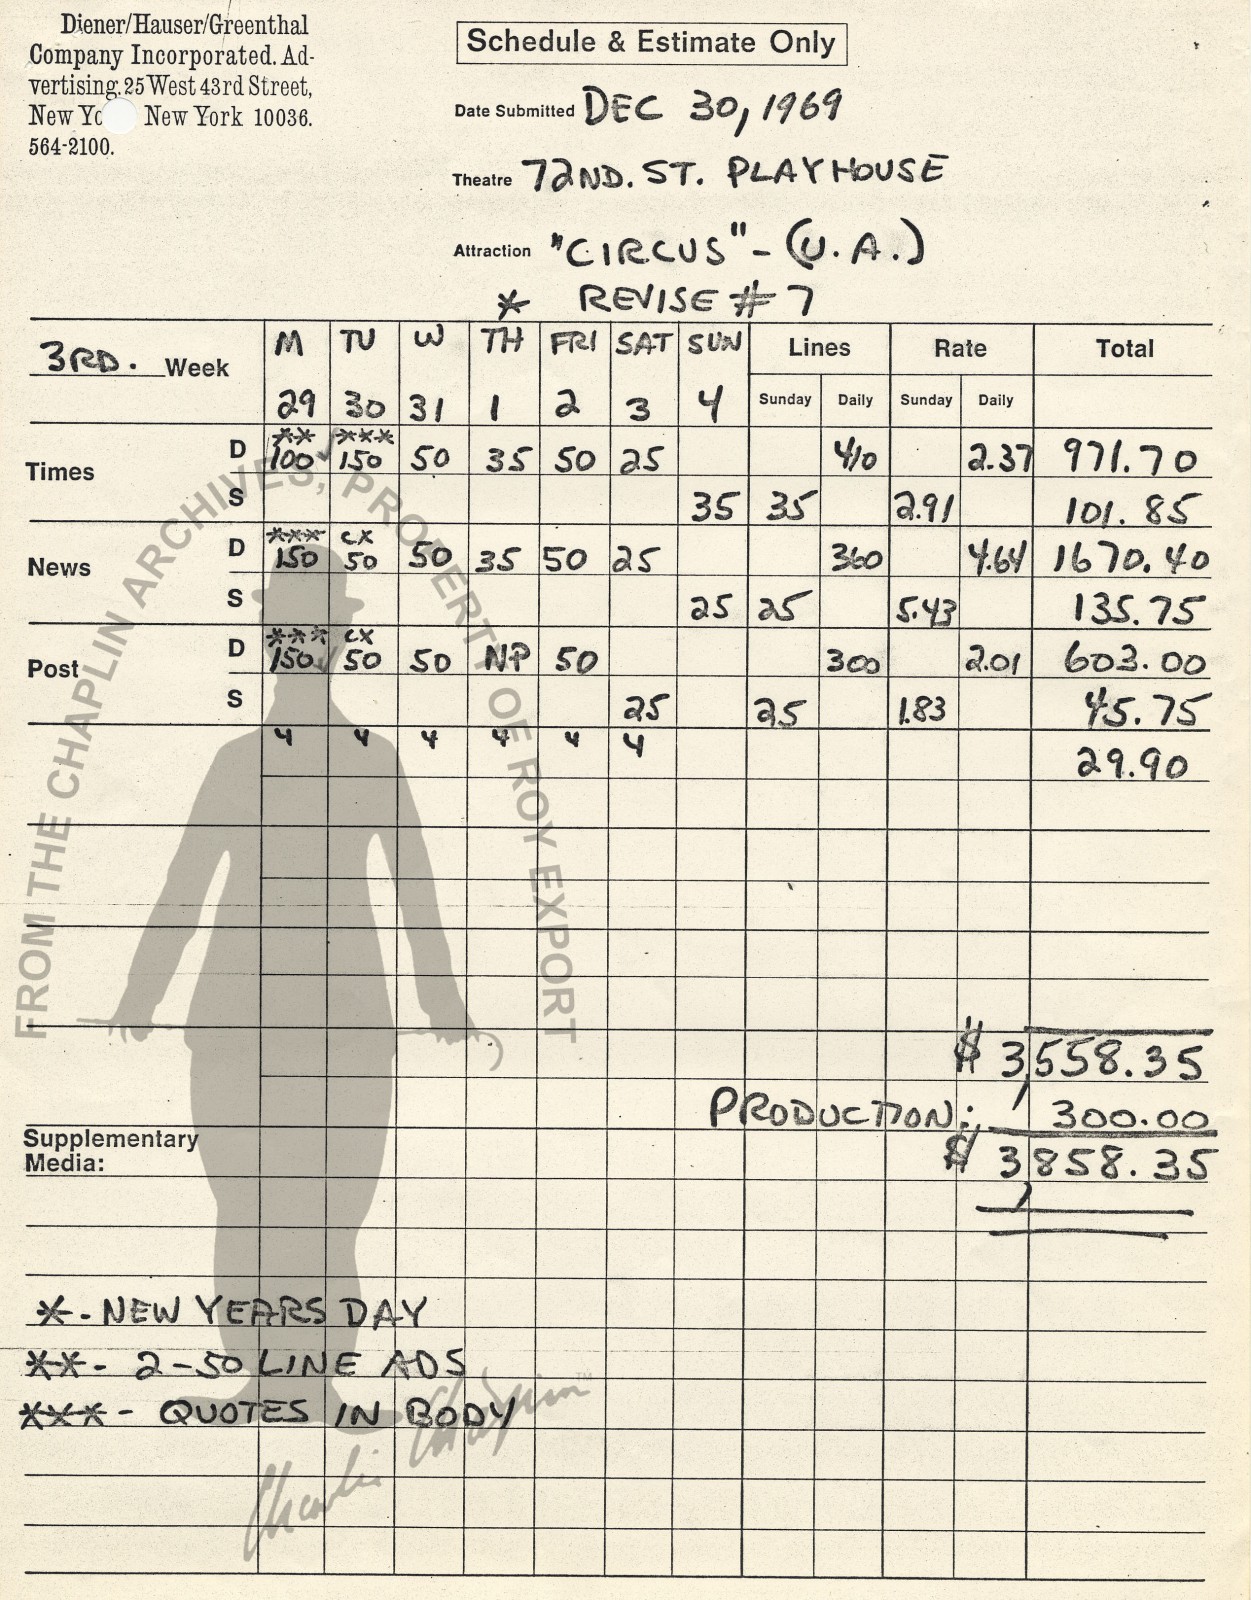 Diener/Hauser/Greenthal
Company Incorporated. Ad-
vertising. 25 West 43rd Street,
New Yo New York 10036.
564-2100.
Schedule & Estimate Only
Date Submitted DEC 30, 1969
Theatre 72ND. ST. PLAYHOUSE
Attraction "CIRCUS" - (U.A.)
* REVISE # 7
3RD. Week M TU W TH FRI SAT SUN Lines Rate Total
29 30 31 1 2 3 4 Sunday Daily Sunday Daily
** ***
Times D 100 150 50 35 50 25 410 2.37 971.70
S 35 35 2.91 101.85
*** CX
News D 150 50 50 35 50 25 360 4.64 1670.40
S 25 25 5.43 135.75
*** CX
Post D 150 50 50 NP 50 300 2.01 603.00
S 25 25 1.83 45.75
4 4 4 4 4 4 29.90
$ 3,558.35
PRODUCTION: 300.00
Supplementary
Media: $ 3,858.35
* - NEW YEARS DAY
** - 2-50 LINE ADS
*** - QUOTES IN BODY
FROM THE CHAPLIN ARCHIVES, PROPERTY OF ROY EXPORT
Charlie Chaplin TM